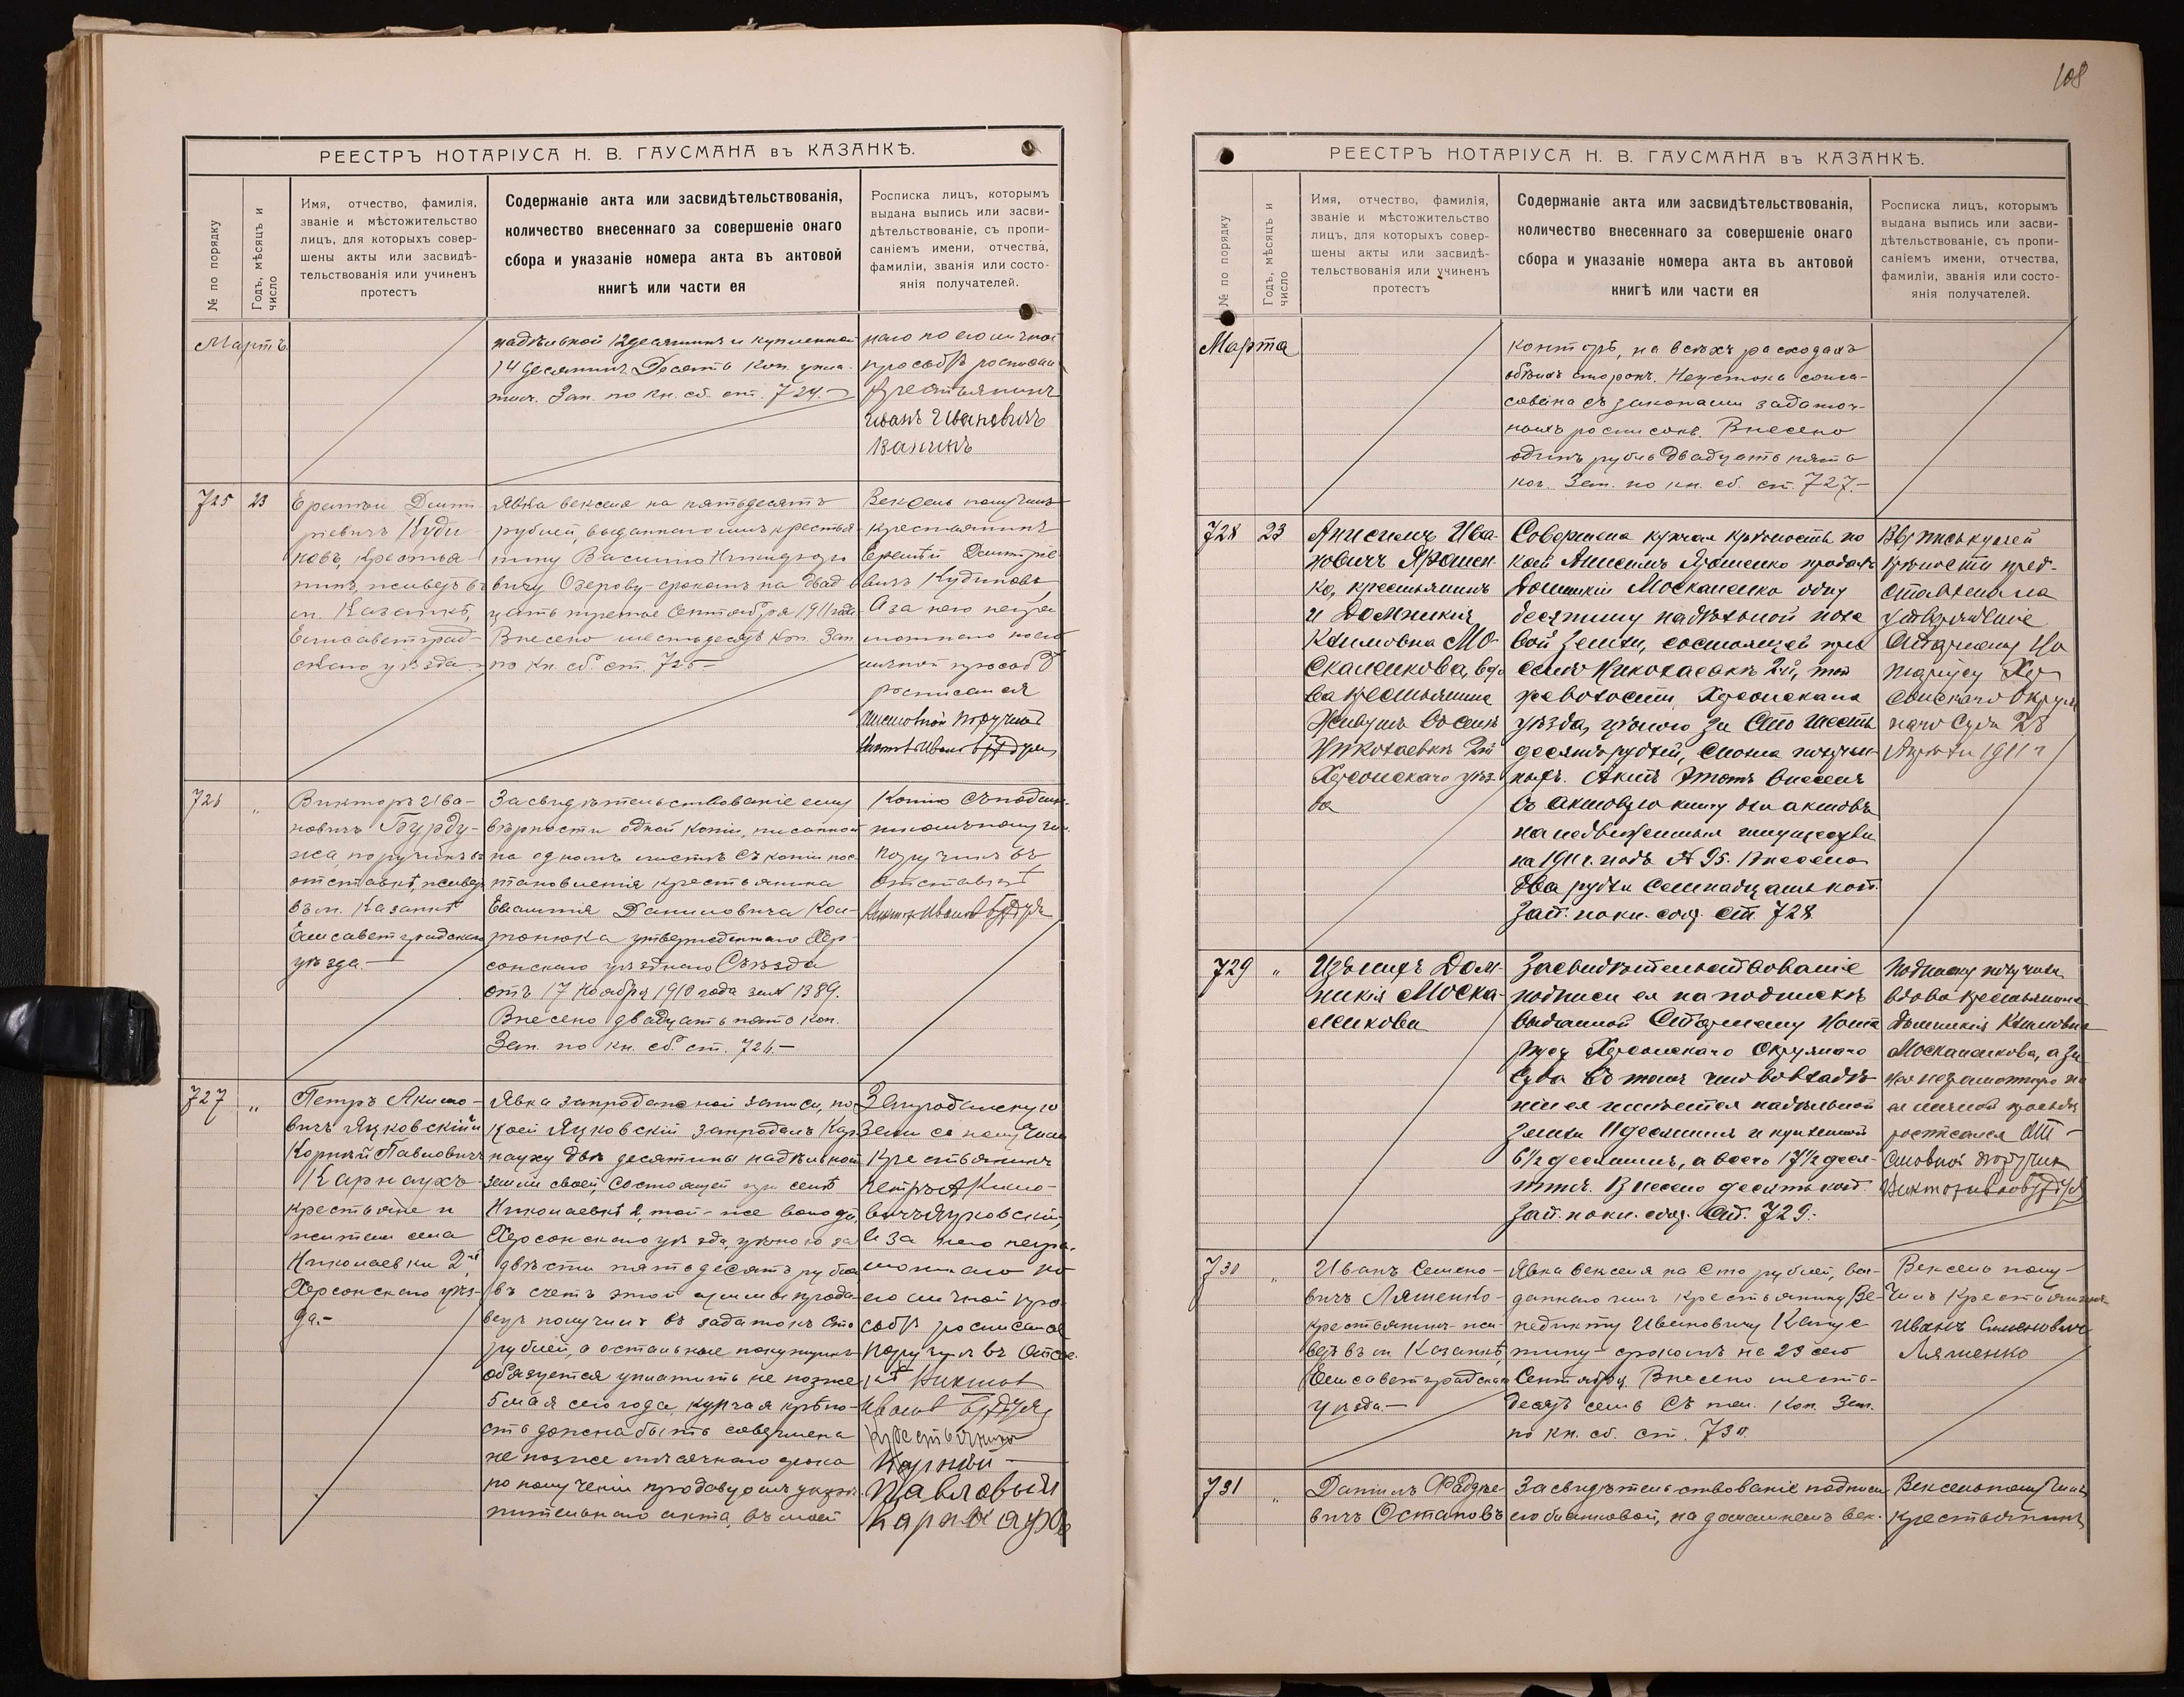 108
РЕЕСТРЪ НОТАРІУСА Н. В. ГАУСМАНА въ КАЗАНКѢ.
№ по порядку
Годъ, мѣсяцъ и
число
Имя, отчество, фамилія,
званіе и мѣстожительство
лицъ, для которыхъ совер-
шены акты или засвидѣ-
тельствованія или учиненъ
протестъ
Содержаніе акта или засвидѣтельствованія,
количество внесеннаго за совершеніе онаго
сбора и указаніе номера акта въ актовой
книгѣ или части ея
Росписка лицъ, которымъ
выдана выпись или засви-
дѣтельствованіе, съ пропи-
саніемъ имени, отчества,
фамиліи, званія или состо-
янія получателей.
Мартъ.
надѣльной 12 десятинъ и купленной
14 десятинъ Десять коп. упла-
Зап. по кн. сб. ст. 724.
наго по его личной
просьбѣ
Крестьянинъ
Иванъ Ивановичъ
725
23
Еремѣй Дмит
ріевичъ Куди
новъ, крестья-
нинъ, живетъ въ
м. Казанкѣ,
Елисаветград-
скаго уѣзда
Явка векселя на пятьдесятъ
рублей, выданнаго имъ крестья-
нину Василію
вичу Озерову срокомъ на двад
цать третье Сентября 1911 года
Внесено шестьдесятъ коп. Зап
по кн. сб. ст. 725 —
Вексель получилъ
крестьянинъ
Еремѣй Дмитріе
вичъ Кудиновъ
А за него негра
мотнаго по его
личной просьбѣ
росписался
Поручикъ
726
"
Викторъ Ива-
новичъ Бурду-
жа поручикъ въ
отставкѣ, живетъ
въ м. Казанкѣ
Елисаветградскаго
уѣзда.—
Засвидѣтельствованіе ему
вѣрности одной копіи, писанной
на одномъ листѣ съ копіи пос-
тановленія крестьянина
Даниловича
утвержденнаго Хер-
сонскаго уѣзднаго Съѣзда
отъ 17 Ноября 1910 года за № 1389.
Внесено двадцать пять коп.
Зап. по кн. сб. ст. 726.—
Копію съ подлин-
поручикъ въ
отставкѣ
727
"
Петръ Акимо-
вичъ Яцковскій и
Корнѣй Павловичъ
Карнаухъ
крестьяне и
жители села
Николаевки 2й,
Херсонскаго уѣз-
да.—
Явка запродажной записи, по
коей Яцковскій запродалъ Кар
науху двѣ десятины надѣльной
земли своей, состоящей при селѣ
Николаевкѣ 2, той-же волости,
Херсонскаго уѣзда, цѣною за
двѣсти пятьдесятъ рублей
въ счетъ этой суммы прода-
вецъ получилъ въ задатокъ сто
рублей, а остальные покупщикъ
обязуется уплатить не позже
5 мая сего года, купчая крѣпо-
сть должна быть совершена
не позже мѣсячнаго срока
по полученіи продавцомъ укрѣ-
пительнаго акта, въ моей
Запродажную
запись получили
Крестьянинъ
Петръ Акимо-
вичъ Яцковскій,
а за него негра-
мотнаго по
его личной про-
сьбѣ росписался
Поручикъ въ отстав-
кѣ Викторъ
Крестьянинъ
Корнѣй
Павловичъ
Карнаухъ
РЕЕСТРЪ НОТАРІУСА Н. В. ГАУСМАНА въ КАЗАНКѢ.
№ по порядку
Годъ, мѣсяцъ и
число
Имя, отчество, фамилія,
званіе и мѣстожительство
лицъ, для которыхъ совер-
шены акты или засвидѣ-
тельствованія или учиненъ
протестъ
Содержаніе акта или засвидѣтельствованія,
количество внесеннаго за совершеніе онаго
сбора и указаніе номера акта въ актовой
книгѣ или части ея
Росписка лицъ, которымъ
выдана выпись или засви-
дѣтельствованіе, съ пропи-
саніемъ имени, отчества,
фамиліи, званія или состо-
янія получателей.
Марта
конторѣ, на всѣхъ расходахъ
обѣихъ сторонъ. Неустойка согла-
сована съ законами задаточ-
ныхъ росписокъ. Внесено
одинъ рубль двадцать пять
коп. Зап. по кн. сб. ст. 727.—
728
23
Анисимъ Ива-
новичъ Ярошен-
ко, крестьянинъ
и Домникія
Климовна Мо-
скаленкова, вдо
ва крестьянина
Живутъ въ селѣ
Николаевкѣ 2й
Херсонскаго уѣз
да
Совершена купчая крѣпость по
коей Анисимъ Ярошенко продалъ
Домникіи Москаленко одну
десятину надѣльной поле
вой земли, состоящей при
селѣ Николаевкѣ 2й, той
же волости, Херсонскаго
уѣзда, цѣною за Сто шесть
десятъ рублей, сполна получен-
ныхъ. Актъ этотъ внесенъ
въ актовую книгу для актовъ
на недвижимыя имущества
на 1911 г. подъ № 95. Внесено
два рубля семнадцать коп.
Зап. по кн. сбор. ст. 728
Выпись купчей
крѣпости пред-
ставлена на
утвержденіе
Старшему Но
таріусу Хер
сонскаго Окруж
наго Суда 28
Апрѣля 1911 г
729
"
Изъ нихъ Дом-
никія Моска-
ленкова
Засвидѣтельствованіе
подписи ея на подпискѣ
выданной Старшему Нота
ріусу Херсонскаго Окружнаго
Суда въ томъ что во владѣ-
ніи ея имѣется надѣльной
земли 11 десятинъ и купленной
6½ десятинъ, а всего 17½ деся-
тинъ. Внесено десять коп.
Зап. по кн. сбор. ст. 729.
Подписку получила
вдова крестьянина
Домникія Климовна
Москаленкова, а за
нее неграмотную по
ея личной просьбѣ
росписался От-
ставной поручик
730
"
Иванъ Семено-
вичъ Ляшенко-
крестьянинъ жи-
ветъ въ м. Казанкѣ,
Елисаветградскаго
уѣзда.—
Явка векселя на сто рублей, вы-
даннаго имъ крестьянину Ве-
недикту Ивановичу
срокомъ на 23 сего
Сентября. Внесено шесть-
десятъ семь съ пол. коп. Зап.
по кн. сб. ст. 730.
Вексель полу-
чилъ крестьянинъ
Иванъ Семеновичъ
Ляшенко
731
"
Даніилъ Фаддѣе
вичъ Остаповъ
Засвидѣтельствованіе подписи
его бланковой, на домашнемъ век-
Вексель получилъ
крестьянинъ